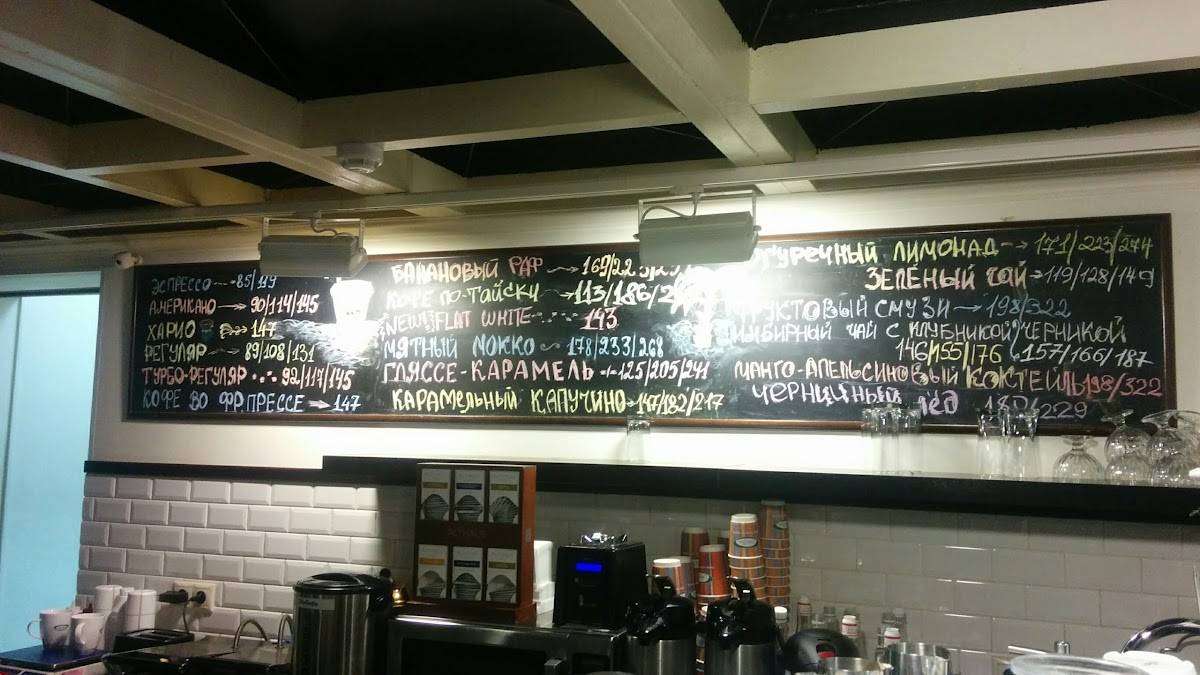 ЭСПРЕССО 85/119
АМЕРИКАНО 90/114/145
ХАРИО 147
РЕГУЛЯР 89/108/131
ТУРБО-РЕГУЛЯР 92/117/145
КОФЕ ВО ФР.ПРЕССЕ 147
БАНАНОВЫЙ РАФ
КОФЕ ПО-ТАЙСКИ
NEW! FLAT WHITE 143
МЯТНЫЙ МОККО 178/233/268
ГЛЯССЕ-КАРАМЕЛЬ 125/205/241
КАРАМЕЛЬНЫЙ КАПУЧИНО 147/182/217
ЛИМОНАД 171/223/274
ЗЕЛЕНЫЙ ЧАЙ 119/128/149
СМУЗИ 198/322
ЧАЙ С КЛУБНИКОЙ/ЧЕРНИКОЙ
146/155/176 157/166/187
МАНГО-АПЕЛЬСИНОВЫЙ КОКТЕЙЛЬ 198/322
ЧЕРНИЧНЫЙ ЛЁД